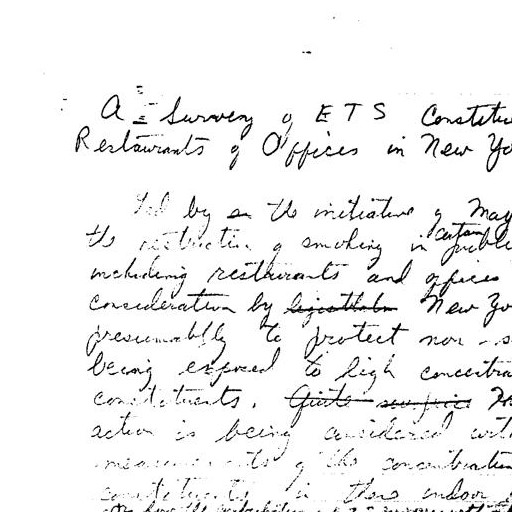 A Survey of ETS Constitue
Restaurants & Offices in New Yo
Led by the initiative of May
the restriction of smoking in certain public
including restaurants and offices
consideration by New Yo
presumably to protect non-s
being exposed to high concentra
constituents.
action is being considered with
measurements of the concentration
constituents in these indoor